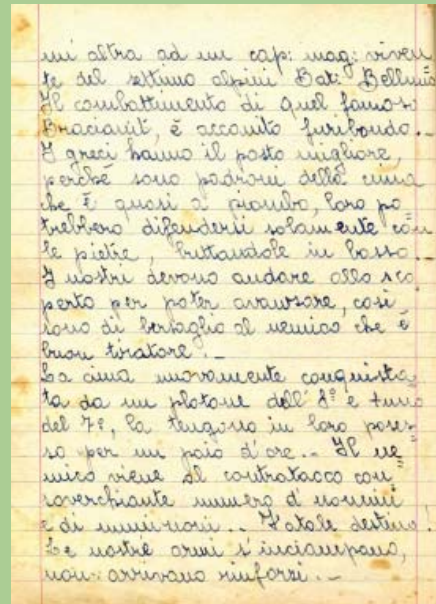 mi altra ad un cap: mag: viven
te del settimo alpini Bat: Belluno
Il combattimento di quel famoso
Bracianit, é accanito furibondo.-
I greci hanno il posto migliore,
perché sono padroni della cima
che é quasi a piombo, loro po
trebbero difendersi solamente con
le pietre, buttandole in basso.-
I nostri devono andare allo sco
perto per poter avansare, cosi
sono di bersaglio al nemico che é
buon tiratore.-
La cima nuovamente conquista
ta da un plotone dell' 8° e uno
del 7°, la tengono in loro posses
so per un paio d'ore.- Il ne
mico viene al contratacco con
soverchiante numero d'uomini
e di munizioni.. Fatale destino!
Le nostre armi s'inciampano,
non arrivano rinforzi.-